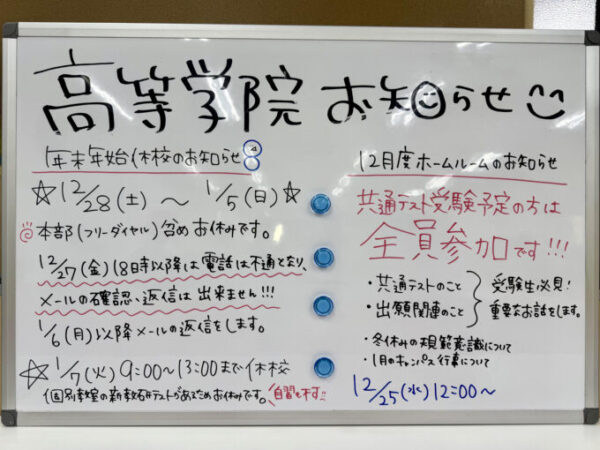 高等学院 お知らせ
年末年始休校のお知らせ
☆12/28(土)〜1/5(日)☆
本部(フリーダイヤル)含めお休みです。
12/27(金)18時以降は電話は不通となり、
メールの確認、返信は出来ません!!!
1/6(月)以降メールの返信をします。
☆1/7(火)9:00〜13:00まで休校
個別教室の新教研テストがあるためお休みです。自習も不可!!
12月度ホームルームのお知らせ
共通テスト受験予定の方は
全員参加です!!!
・共通テストのこと
・出願関連のこと
受験生必見!
重要なお話をします。
・冬休みの規範意識について
・1月のキャンパス行事について
12/25(水)12:00〜